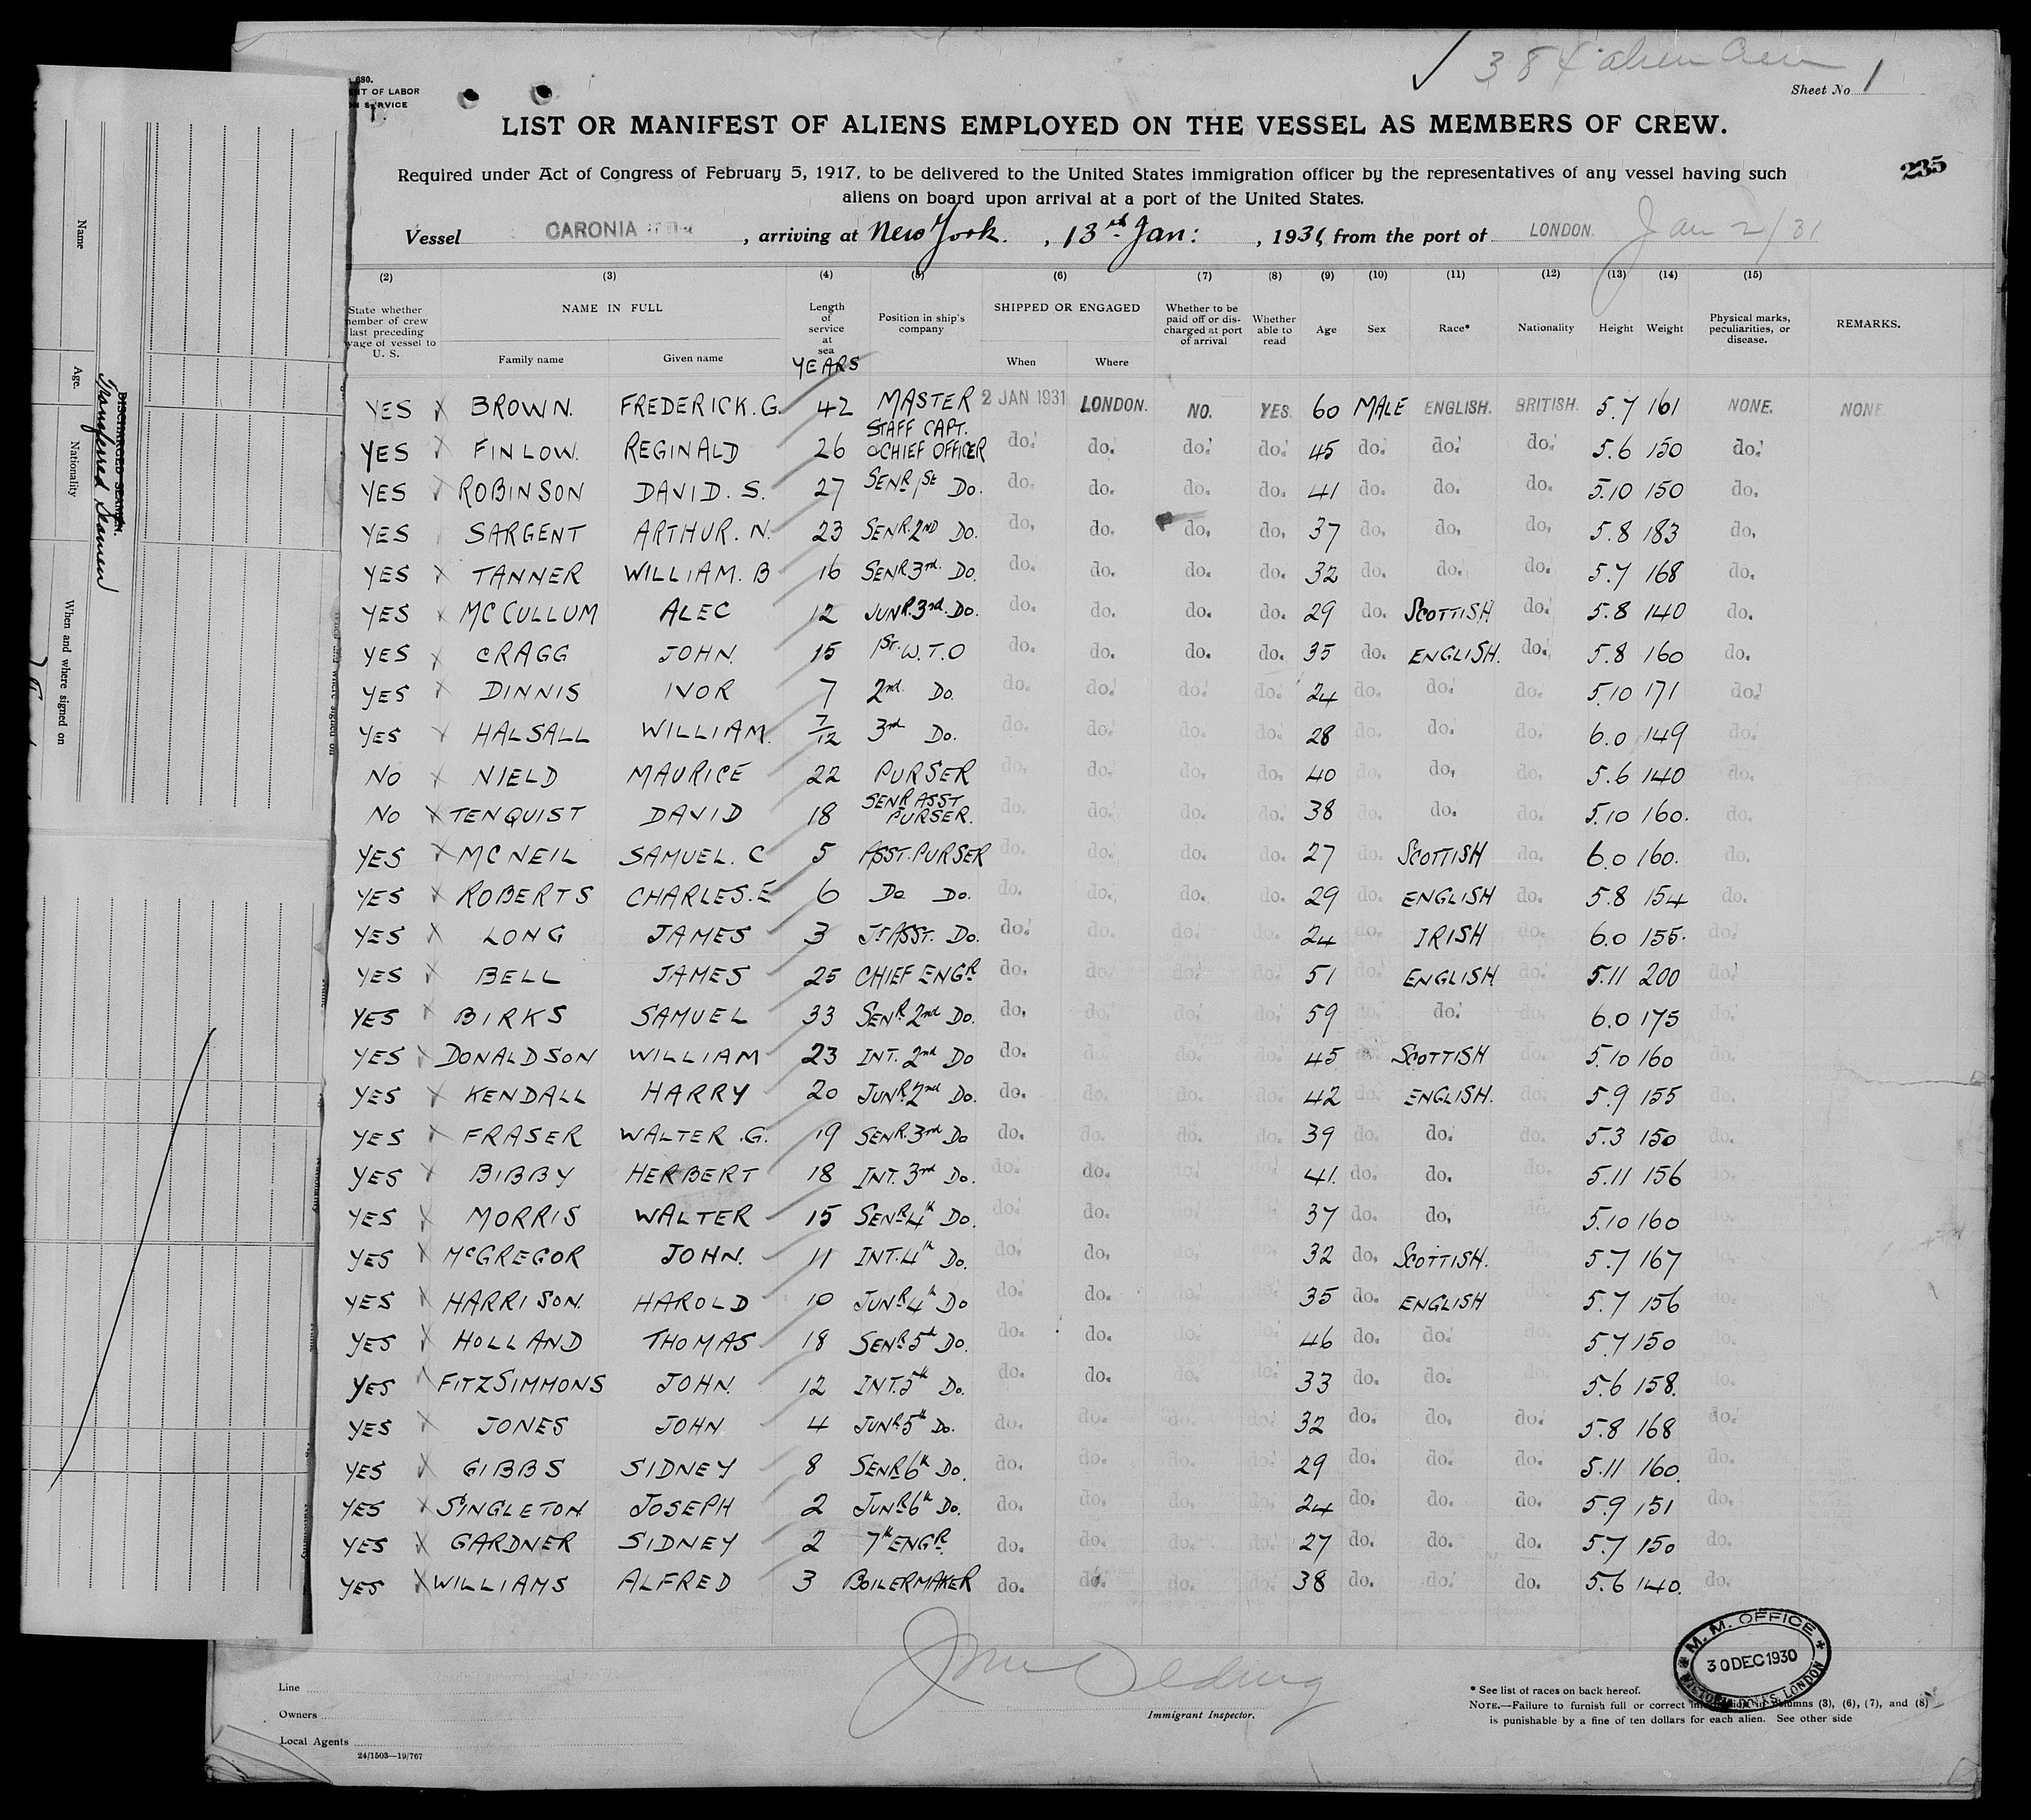 680.
ENT OF LABOR
N SERVICE
Sheet No 1
LIST OR MANIFEST OF ALIENS EMPLOYED ON THE VESSEL AS MEMBERS OF CREW.
235
Required under Act of Congress of February 5, 1917, to be delivered to the United States immigration officer by the representatives of any vessel having such
aliens on board upon arrival at a port of the United States.
Vessel CARONIA , arriving at New York. , 13th Jan: , 1931, from the port of LONDON. Jan 2/31
(2) (3) (4) (5) (6) (7) (8) (9) (10) (11) (12) (13) (14) (15)
State whether member of crew last preceding voyage of vessel to U. S. NAME IN FULL Family name Given name Length of service at sea YEARS Position in ship's company SHIPPED OR ENGAGED When Where Whether to be paid off or discharged at port of arrival Whether able to read Age Sex Race* Nationality Height Weight Physical marks, peculiarities, or disease. REMARKS.
YES BROWN. FREDERICK.G. 42 MASTER 2 JAN 1931 LONDON. NO. YES. 60 MALE ENGLISH. BRITISH. 5.7 161 NONE. NONE
YES FINLOW. REGINALD 26 STAFF CAPT. CHIEF OFFICER do. do. do. do. 45 do. do. do. 5.6 150 do.
YES ROBINSON DAVID.S. 27 SENR 1St Do. do. do. do. do. 41 do. do. do. 5.10 150 do.
YES SARGENT ARTHUR.N. 23 SENR 2ND Do. do. do. do. do. 37 do. do. do. 5.8 183 do.
YES TANNER WILLIAM.B 16 SENR 3rd. Do. do. do. do. do. 32 do. do. do. 5.7 168 do.
YES MCCULLUM ALEC 12 JUNR.3rd.Do. do. do. do. do. 29 do. SCOTTISH do. 5.8 140 do.
YES CRAGG JOHN. 15 1ST.W.T.O do. do. do. do. 35 do. ENGLISH. do. 5.8 160 do.
YES DINNIS IVOR 7 2nd. Do. do. do. do. do. 24 do. do. do. 5.10 171 do.
YES HALSALL WILLIAM. 7/12 3rd Do. do. do. do. do. 28 do. do. do. 6.0 149 do.
NO NIELD MAURICE 22 PURSER do. do. do. do. 40 do. do. do. 5.6 140 do.
NO TENQUIST DAVID 18 SENR ASST PURSER. do. do. do. do. 38 do. do. do. 5.10 160. do.
YES MCNEIL SAMUEL.C 5 ASST.PURSER do. do. do. do. 27 do. SCOTTISH do. 6.0 160. do.
YES ROBERTS CHARLES.E 6 Do Do. do. do. do. do. 29 do. ENGLISH do. 5.8 154 do.
YES LONG JAMES 3 Jr ASST. Do. do. do. do. do. 24 do. IRISH do. 6.0 155. do.
YES BELL JAMES 25 CHIEF ENGR do. do. do. do. 51 do. ENGLISH do. 5.11 200 do.
YES BIRKS SAMUEL 33 SENR 2nd Do. do. do. do. do. 59 do. do. do. 6.0 175 do.
YES DONALDSON WILLIAM 23 INT. 2nd Do do. do. do. do. 45 SCOTTISH do. 5.10 160 do.
YES KENDALL HARRY 20 JUNR.2nd Do. do. do. do. do. 42 do. ENGLISH. do. 5.9 155 do.
YES FRASER WALTER.G. 19 SENR.3rd Do do. do. do. do. 39 do. do. do. 5.3 150 do.
YES BIBBY HERBERT 18 INT.3rd Do. do. do. do. do. 41. do. do. do. 5.11 156
YES MORRIS WALTER 15 SENR4th Do. do. do. do. do. 37 do. do. do. 5.10 160
YES McGREGOR JOHN. 11 INT.4th Do. do. do. do. do. 32 do. SCOTTISH. do. 5.7 167
YES HARRISON. HAROLD 10 JUNR4th Do do. do. do. do. 35 do. ENGLISH do. 5.7 156
YES HOLLAND THOMAS 18 SENR5th Do. do. do. do. do. 46 do. do. do. 5.7 150
YES FITZSIMMONS JOHN. 12 INT.5th Do. do. do. do. do. 33 do. do. do. 5.6 158. do.
YES JONES JOHN 4 JUNR5th Do. do. do. do. do. 32 do. do. do. 5.8 168 do.
YES GIBBS SIDNEY 8 SENR6th Do. do. do. do. do. 29 do. do. do. 5.11 160. do.
YES SINGLETON JOSEPH 2 JUNR6th Do. do. do. do. do. 24 do. do. do. 5.9 151 do.
YES GARDNER SIDNEY 2 7th ENGR. do. do. do. do. 27 do. do. do. 5.7 150 do.
YES WILLIAMS ALFRED 3 BOILERMAKER do. do. do. do. 38 do. do. do. 5.6 140. do.
M. M. OFFICE
30 DEC 1930
VICTORIA DOCKS LONDON
Line
Owners
Local Agents
24/1503—19/767
Immigrant Inspector.
* See list of races on back hereof.
NOTE.—Failure to furnish full or correct information in columns (3), (6), (7), and (8)
is punishable by a fine of ten dollars for each alien. See other side
DISCHARGED SEAMEN.
Transferred Seamen
Name
Age.
Nationality
When and where signed on